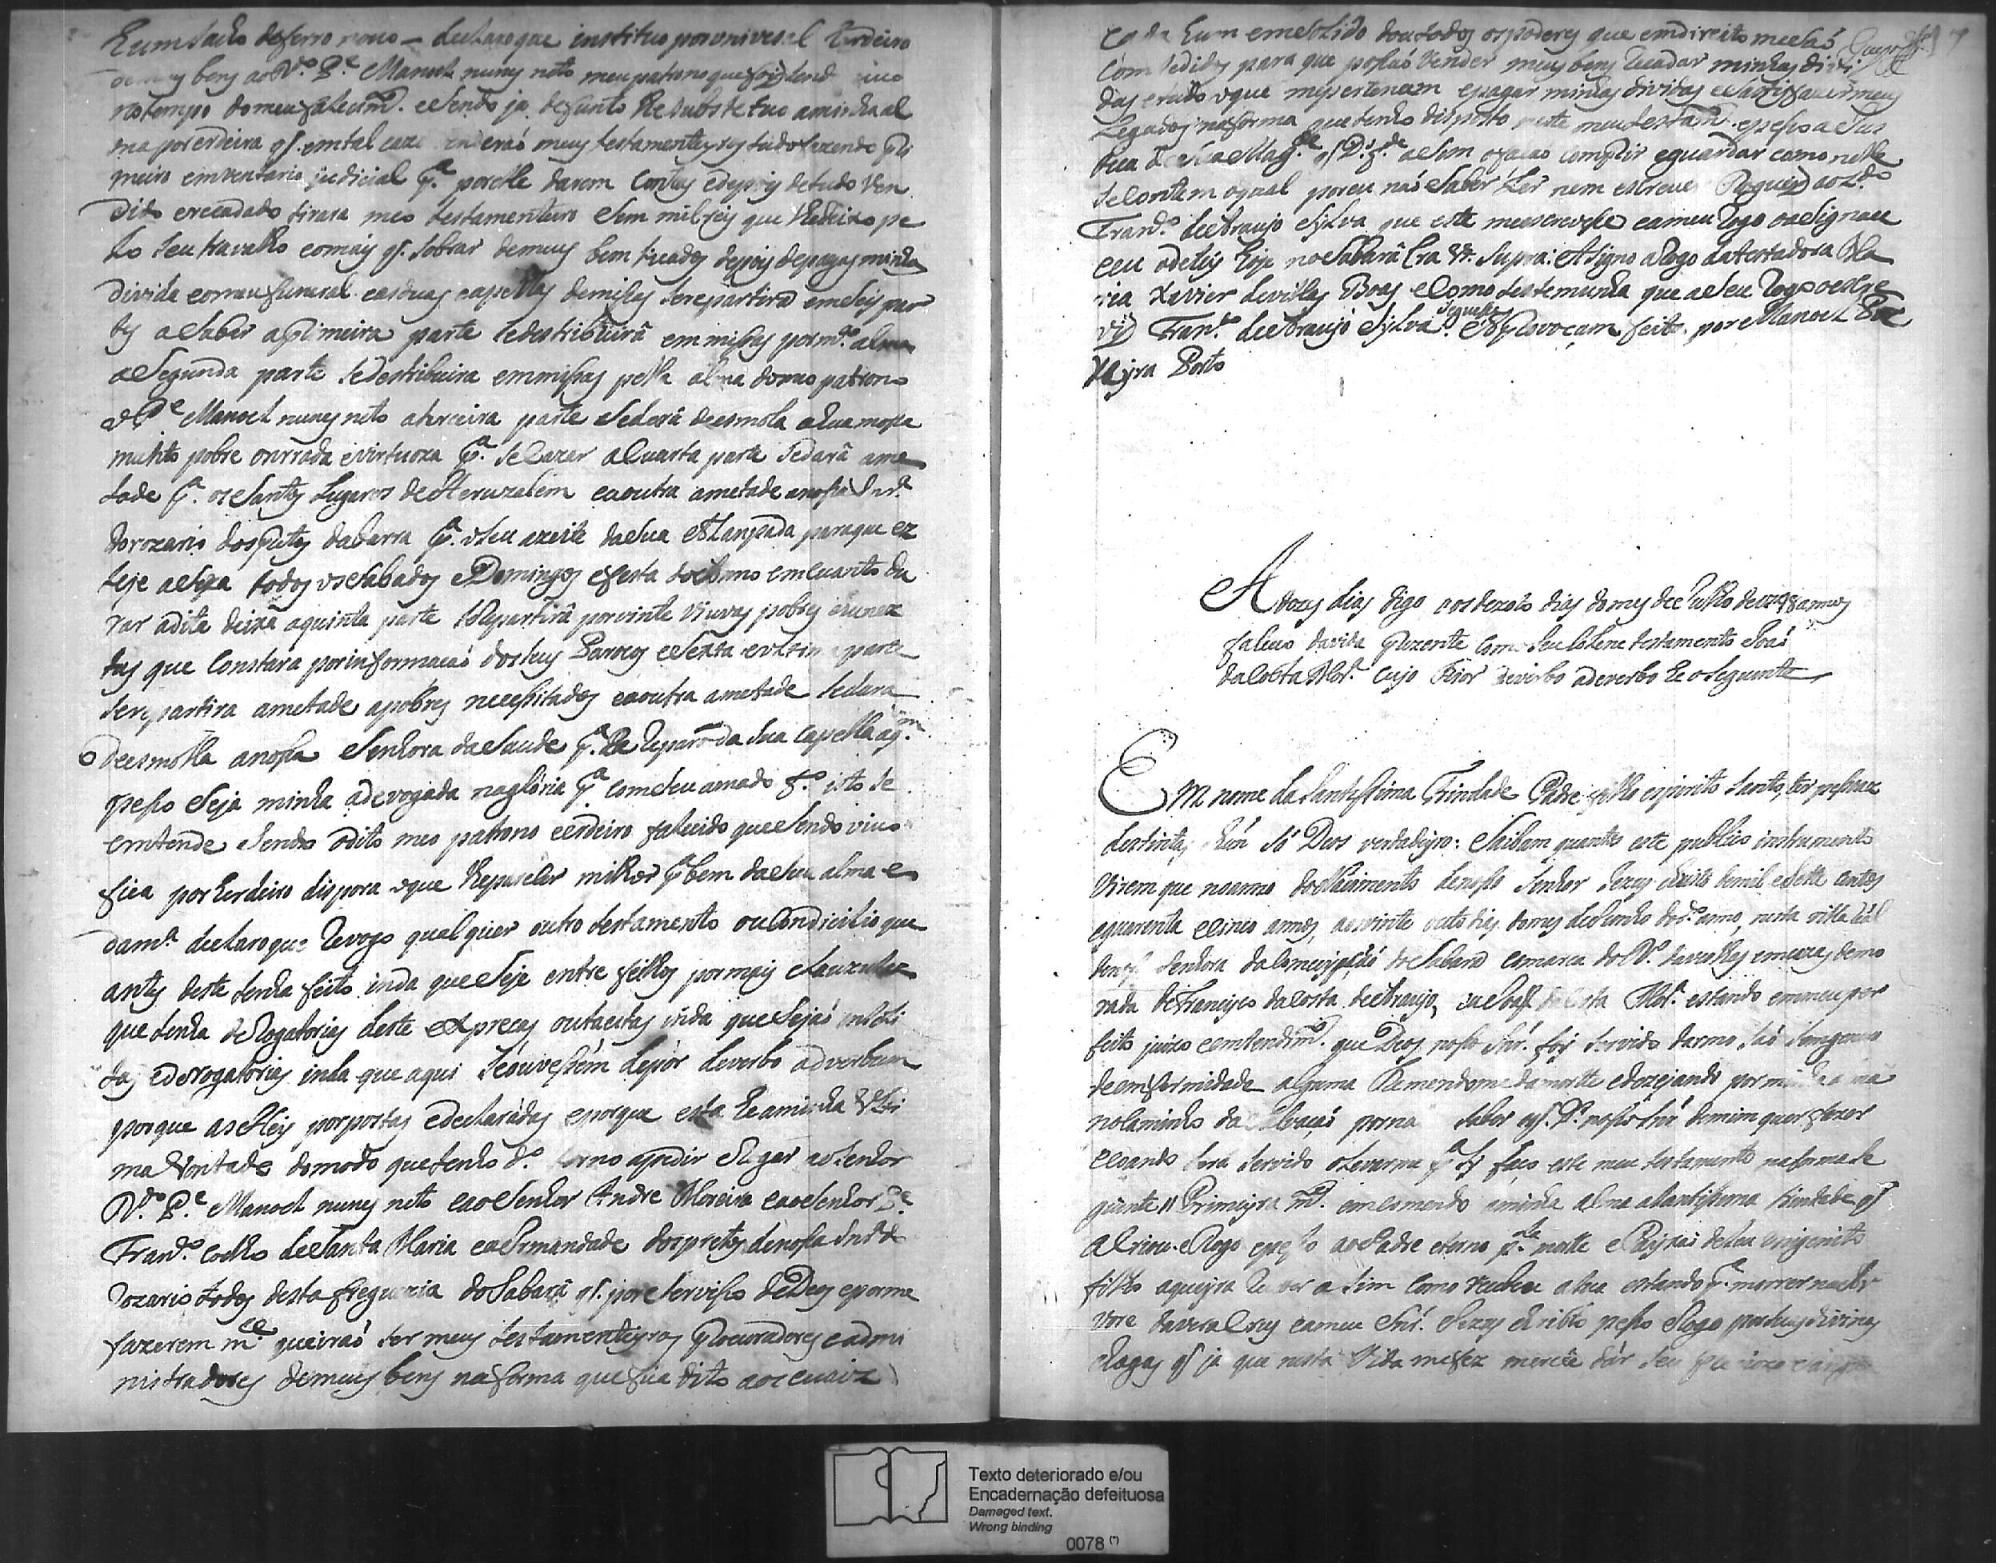 hum tacho de ferro novo – declaro que instituo por univesal Erdeiro
beñs ao R.do P.e Manoel nunes neto meu patrono que foi, sendo vivo
no tempo do meu falecim.to e sendo ja defunto lhe substetuo a minha al
ma por erdeira q̃ em tal cazo venderaõ meus testamenteyros tudo fazendo pri
meiro emventario judicial p.a por elle darem contas e depois de tudo ven
dido e recadado tirara meo testamenteiro sem mil reis que lhe deixo pe
lo seu travalho e o mais q̃ sobrar de meus bem tuados depois de pagas minhas
divida e o meu funeral e as duas capellas de misas se repartira em seis par
tes a saber a primeira parte se destribuirâ em missas por m.a alma
a segunda parte se destribuira em missas pella alma do meo patrono
o P.e Manoel nunes neto a terceira parte se darâ de esmola a hua mossa
muhto pobre onrrada e virtuoza p.a se cazar a cuarta parte se darâ ame
tade p.a os santos Lugares de Heruzalem e a outra ametade a nossa Snr.a
do rozario dos pretos da barra p.a o seu azeite da sua Alampada para que es
teje aseza todos os sabados e Domingos e festa do Anno em cuanto du
rar a dita deixa a quinta parte se repartirâ por vinte viuvas pobres e unes
tas que constara por informacaõ dos seus Parocos e sexta e ultima parte
se repartira ametade a pobres necessitados e a outra ametade se dara
de esmolla a nossa senhora da saude p.a a reparo da sua capella a q.m
pesso seja minha adevogada na gloria p.a com seu amado f.o isto se
emtende sendo o dito meo patrono e erdeiro falecido que sendo vivo
fica por herdeiro dispora o que lhe pareser milhor p.a bem da sua alma e
da m.a declaro que revogo qualquer outro testamento ou condicilio que
antes deste tenha feito inda que seje entre filhos por mais clauzulas
que tenha derogatorias deste expreças ou tacitas inda que sejaõ
das e derogatorias inda que aqui se ouvessem de pôr de verbo ad verbum
porque as Hey por postas e declarádas e porque esta he a minha ulti
ma vontade do modo que tenho d.o torno a pedir e rogar ao senhor
R.do P.e Manoel nunes neto e ao senhor Andre Moreira e ao senhor P.e
Fran.co Coelho de santa Maria e a Irmandade dos pretos de nossa Snr.a do
rozario todos desta freguezia do Sabarâ q̃ por serviço de Deos e por me
fazerem m.ce queiraõ ser meus testamenteyros Procuradores e admi
nistradores de meus bens na forma que fica dito aos cuais
cada hum emsolido dou todos os poderes que em direito me saõ
comsedidos para que possaõ vender meus bens recadar minhas divi
das e tudo o que me pertencem e pagar minhas dividas e satisfazer meus
Legados na forma que tenho disposto neste meu testam.to e pesso as Jus
ticas de sua Mag.de q̃ D.s g.de asim o facaõ comprir e guardar como nelle
se contem o qual por eu naõ saber Ler nem escrever Roguei ao L.do
Fran.co de Araujo Sylva que este me escrevese e a meu Rogo o asignace
e eu o deteis oje no Sabarâ Era Ut supra: Asigno a Rogo da testadora Ma
ria Xavier de villas Boas e Como testemunha que a seu Rogo o escre
vi Fran.co de Araujo Sylva. Seguese Aprovoçam feita por Manoel Pre
Xayra Porto
Aos dozes dias digo aos dezoito dias do mes de Julho de 1748 annos
faleceo da vida prezente com seu solene testamento Joaõ
da Costa Mor.a cujo thior de verbo adeverbo he o seguente
Em nome da santissima Trindade Padre filho espirito santo, tres pessoas
destintas, hũn só Deos verdadeyro: Saibam quantos este publico instrumento
virem que no anno do Nascimento de nosso Senhor Jezus christo de mil e sette centos
e quarenta e sinco annos, aos vinte e outo dias do mes de Junho do d.o anno, nesta villa Real
de nossa Senhora da Comceipçaõ do Sabarâ comarca do R.o das velhas em cazas de mo
rada de Francisco da costa de Araujo, eu Joaõ da Costa Mor.a estando em meu per
feito juizo e emtendim.to que Deos nosso Snr. foi servido darme, saõ sem
de emfermidade alguma temendome da morte e dezejando por minha alma
no Caminho da salvaçaõ por naõ saber o q̃ D.s nosso Snr de mim quer fazer
e coando será servido o Levarme p.a si faço este meu testamento na forma se
guinte // Primeyra m.te emcomendo a minha alma a santissima Trindade q̃
a criou e Rogo e pesso ao Padre eterno p.la morte e Payxaõ de seu unigenito
filho a queyra receber a sim como recebeo a sua estando p.a morrer na Ar
vore da vera Crus e a meu Snr. Jezus christo pesso e Rogo por suas divinas
chagas q̃ ja que nesta vida me fez mercêe dár seu precioso sangue
Texto deteriorado e/ou
Encadernação defeituosa
Damaged text.
Wrong binding
0078 (*)